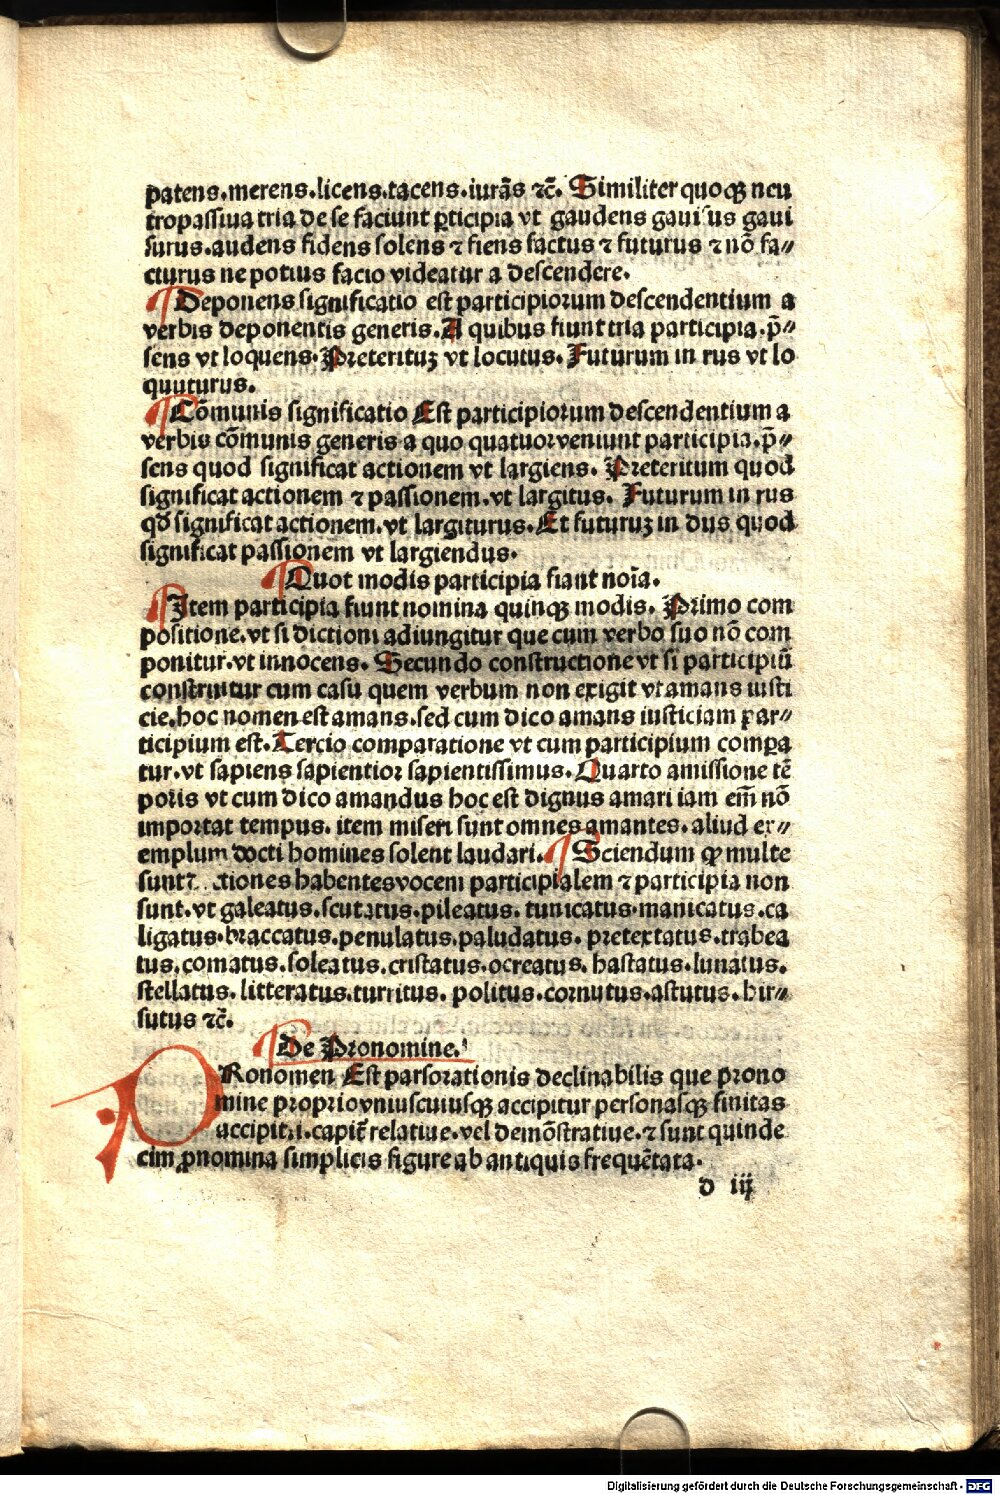 patens.merens.licens.tacens.iurãs ⁊c̃. Similiter quoqꝫ neu
tropassiua tria de se faciunt ꝑticipia vt gaudens gauisus gaui
surus.audens fidens solens ⁊ fiens factus ⁊ futurus ⁊ nõ fa⸗
cturus ne potius facio videatur a descendere.
Deponens significatio est participiorum descendentium a
verbis deponentis generis. A quibus fiunt tria participia.p̃⸗
sens vt loquens. Preterituꝫ vt locutus. Futurum in rus vt lo
quuturus.
Cõmunis significatio Est participiorum descendentium a
verbis cõmunis generis a quo quatuor veniunt participia.p̃⸗
sens quod significat actionem vt largiens. Preteritum quod
significat actionem ⁊ passionem.vt largitus. Futurum in rus
qd̃ significat actionem.vt largiturus. Et futuruꝫ in dus quod
significat passionem vt largiendus.
Quot modis participia fiant noĩa.
Item participia fiunt nomina quinqꝫ modis. Primo com
positione.vt si dictioni adiungitur que cum verbo suo nõ com
ponitur.vt innocens. Secundo constructione vt si participiũ
construitur cum casu quem verbum non exigit vt amans iusti
cie.hoc nomen est amans.sed cum dico amans iusticiam par⸗
ticipium est. Tercio comparatione vt cum participium compa
tur.vt sapiens sapientior sapientissimus. Quarto amissione tẽ
poris vt cum dico amandus hoc est dignus amari iam em̃ nõ
importat tempus. item miseri sunt omnes amantes. aliud ex⸗
emplum docti homines solent laudari. Sciendum ꝙ multe
sunt ctiones habentes vocem participialem ⁊ participia non
sunt.vt galeatus.scutatus.pileatus. tunicatus.manicatus.ca
ligatus.braccatus.penulatus.paludatus. pretextatus.trabea
tus.comatus.soleatus.cristatus.ocreatus. hastatus.lunatus.
stellatus. litteratus.turritus. politus.cornutus.astutus. hir⸗
sutus ⁊c̃.
De Pronomine.
PRonomen Est pars orationis declinabilis que prono
mine proprio vniuscuiusqꝫ accipitur personasqꝫ finitas
accipit .i.capit̃ relatiue.vel demõstratiue.⁊ sunt quinde
cim ꝓnomina simplicis figure ab antiquis frequẽtata.
d iij
Digitalisierung gefördert durch die Deutsche Forschungsgemeinschaft - DFG